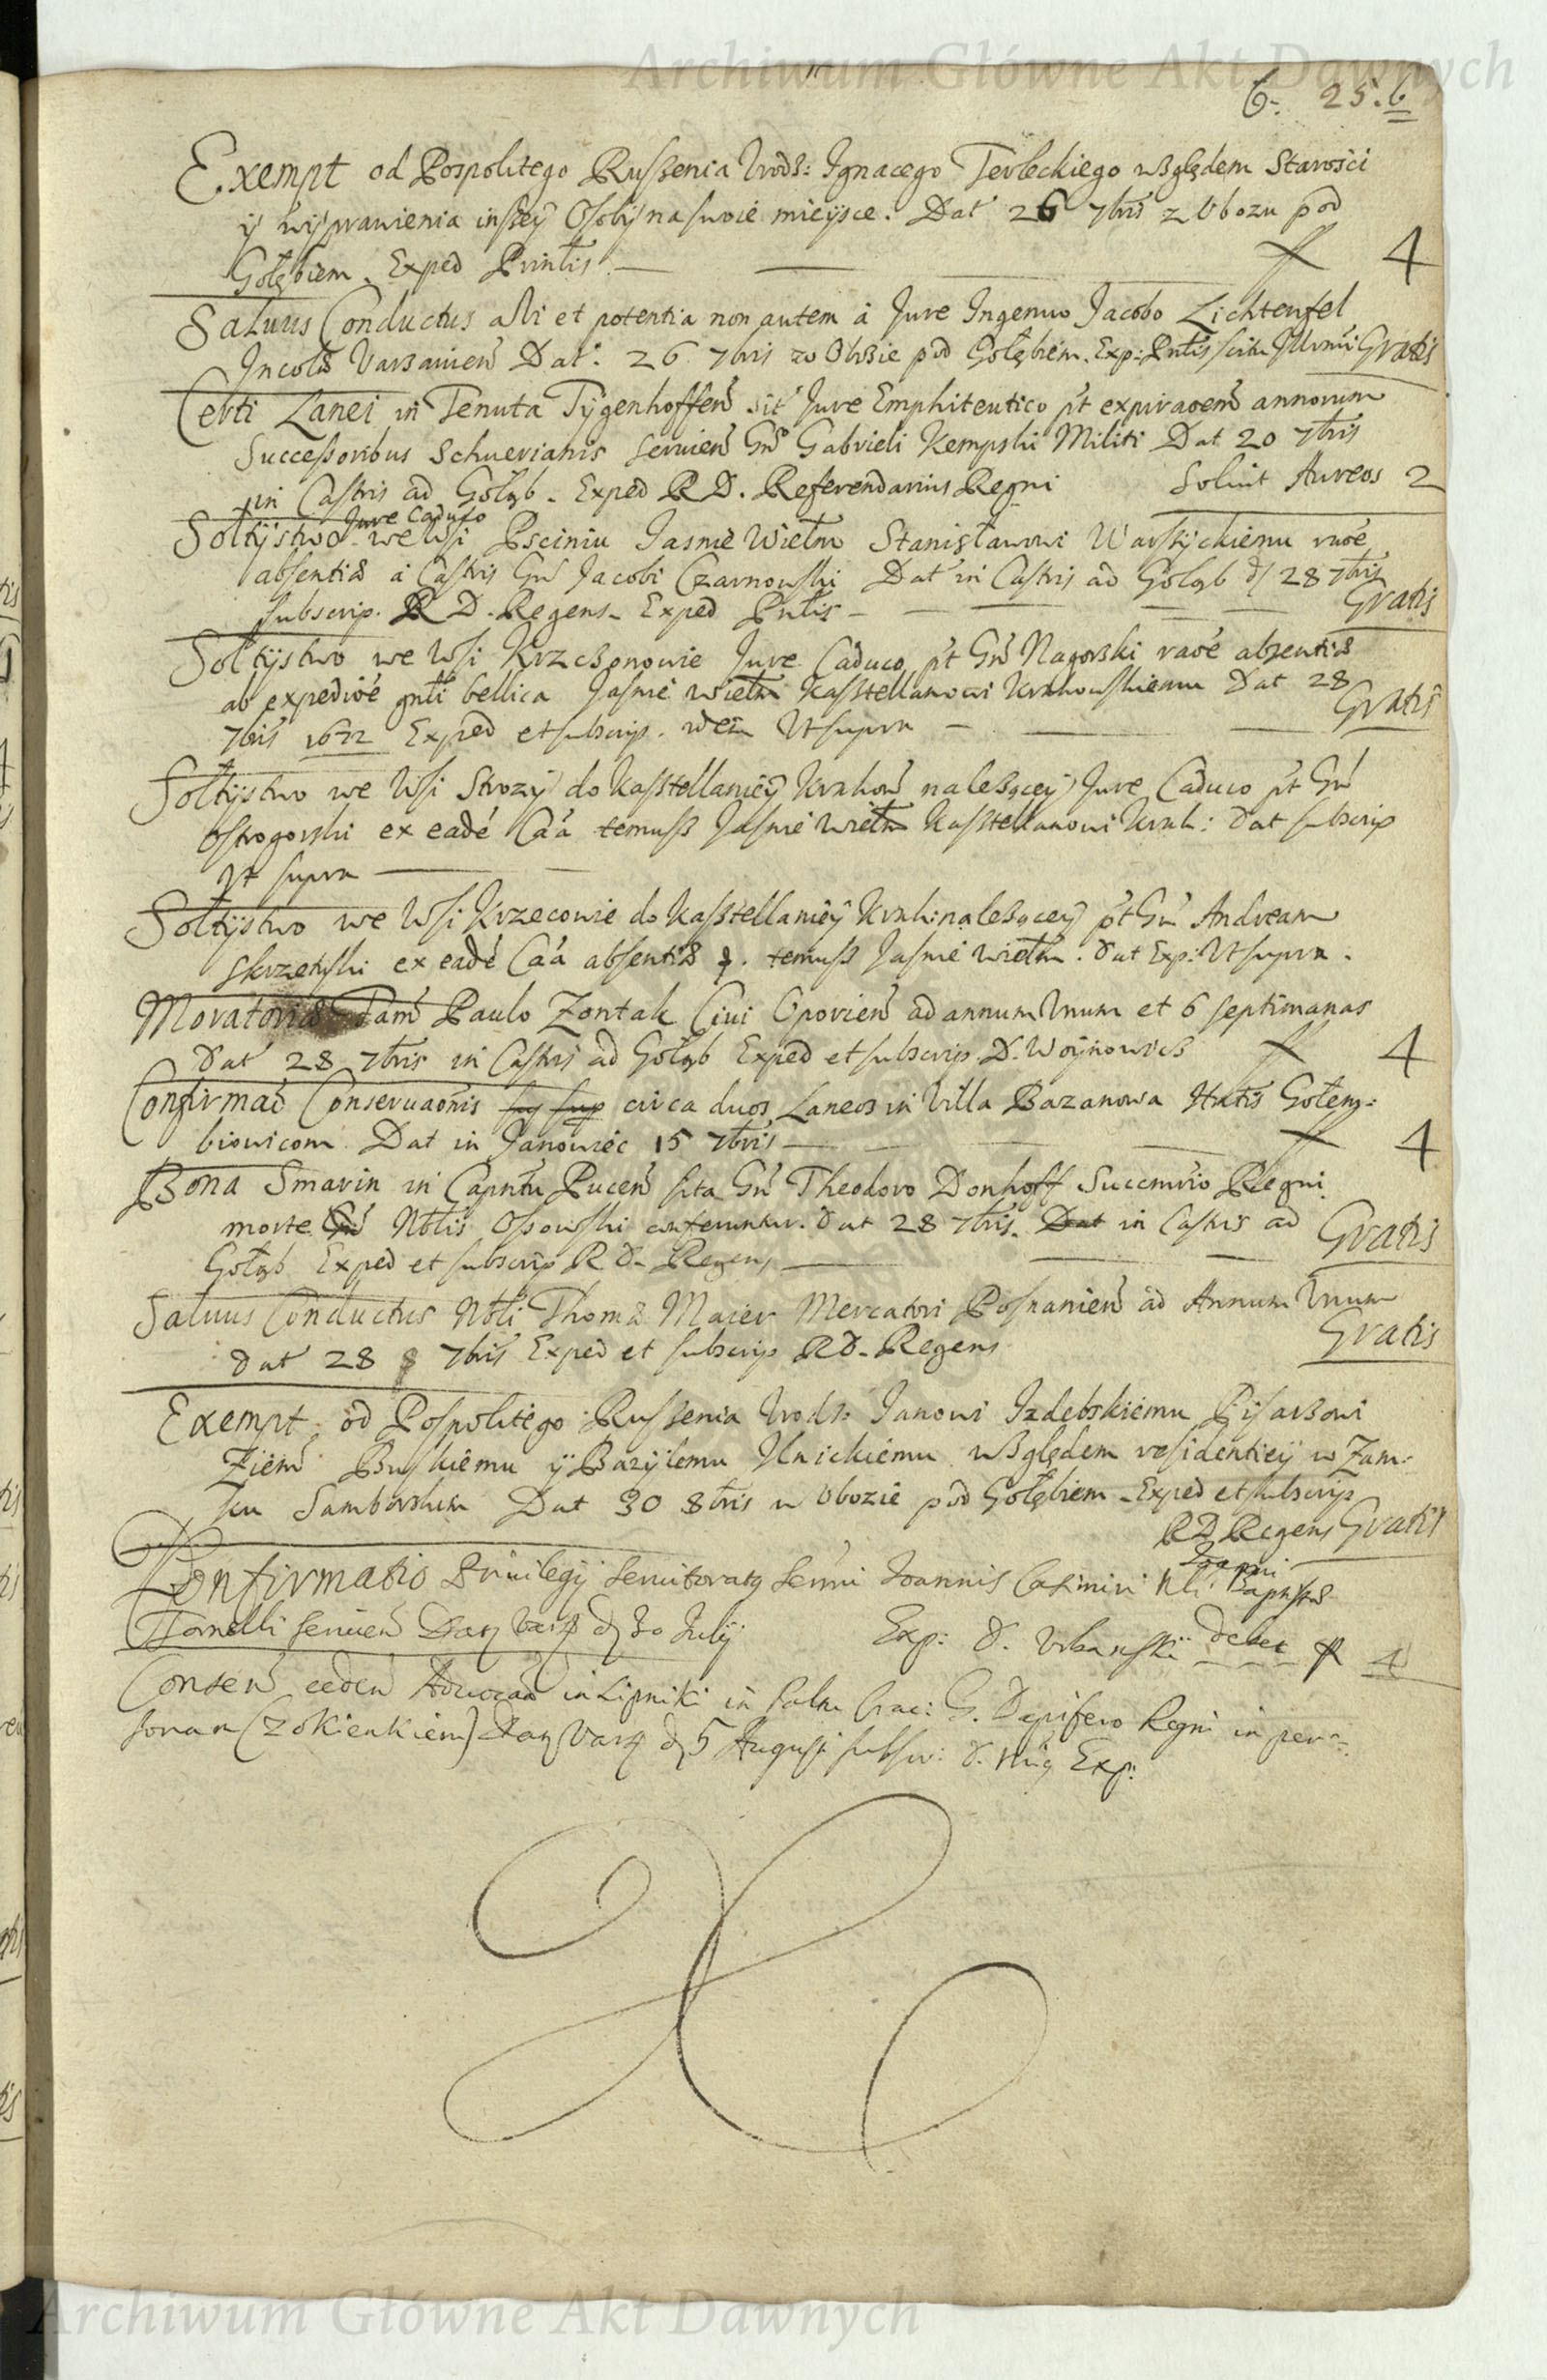 Archiwum Główne Akt Dawnych
6. 25. 6
Exempt od Pospolitego Ruszenia Urodz: Ignacego Terleckiego względem Starosci
y wyprawienia inszey Osoby na swoie mieysce. Dat 26 7bris z Obozu pod
Gołębiem. Exped Printis 4
Saluus Conductus a Vi et potentia non autem à Jure Ingenuo Jacobo Lichtenfel
Incolæ Varsavien Dat: 26 7bris w Obozie pod Gołębiem. Exp: Pntis Gratis
Certi Lanei in Tenuta Tygenhoffen sit Jure Emphiteutico pt expiraoem annorum
Successoribus Schuerianis servien Gnso Gabrieli Kempski Militi Dat 20 7bris
in Castris ad Gołąb. Exped R D. Referendarius Regni Soluit Aureos 2
Jure Caduco
Sołtystwo we Wsi Psciniu Jasnie Wielm Stanisławowi Warszyckiemu raoe
absentiæ à Castris Gn Jacobi Czarnowski Dat in Castris ad Gołąb d 28 7bris
subscrip. R D. Regens. Exped Pntis Gratis
Sołtystwo we Wsi Krzczonowie Jure Caduco pt Gn Nagorski raoe absentiæ
ab expedioe gnli bellica Jasnie Wielm Kasztellanowi Krakowskiemu Dat 28 Gratis
7bris 1672 Exped et subscrip. idem Ut supra
Sołtystwo we Wsi Strozy do Kasztellaniey Krakow nalezącey Jure Caduco pt Gn
Ostrogorski ex eade Caa temusz Jasnie Wielm Kasztellanowi Krak: Dat subscrip
Ut supra
Sołtystwo we Wsi Krzeconie do Kasztellaniey Krak: nalezącey pt Gn Andream
Skrzetuski ex eade Caa absentiæ temusz Jasnie Wielm. Dat Exp: Ut supra.
Moratoria Fam Paulo Zontak Ciui Opocien ad annum Unum et 6 septimanas
Dat 28 7bris in Castris ad Gołąb Exped et subscrip D. Woynowicz 4
Confirmao Conseruaonis circa duos Laneos in Villa Bazanowa Hntis Gołem:
biowicom Dat in Janowiec 15 7bris 4
Bona Smazin in Capntu Pucen sita Gn Theodoro Donhoff Succmrio Regni
morte Nblis Ossowski conferuntur. Dat 28 7bris. Dat in Castris ad Gratis
Gołąb Exped et subscrip R D. Regens
Saluus Conductus Nbli Thomæ Maier Mercatori Posnanien ad Annum Unum
Dat 28 7bris Exped et subscrip R D. Regens Gratis
Exempt od Pospolitego Ruszenia Urodz: Janowi Izdebskiemu Pisarzowi
Ziem Buskiemu y Bazylemu Unickiemu względem residentiey w Zam:
ku Samborskim Dat 30 8bris w Obozie pod Gołębiem. Exped et subscrip
R D Regens Gratis
Confirmatio Priuilegij Seruitoratq Senni Joannis Casimiri Nli Joanni Baptistæ
Tomelli seruien Datq Vars d 30 Julij Exp: D. Urbanski debet 4
Consen ceden Aduocao in Lipniki in Palnu Crac: G. Dapifero Regni in per=
sonam (z Okienkiem) Datq Vars d 5 Augusti subscr: D. Exp:
Archiwum Główne Akt Dawnych